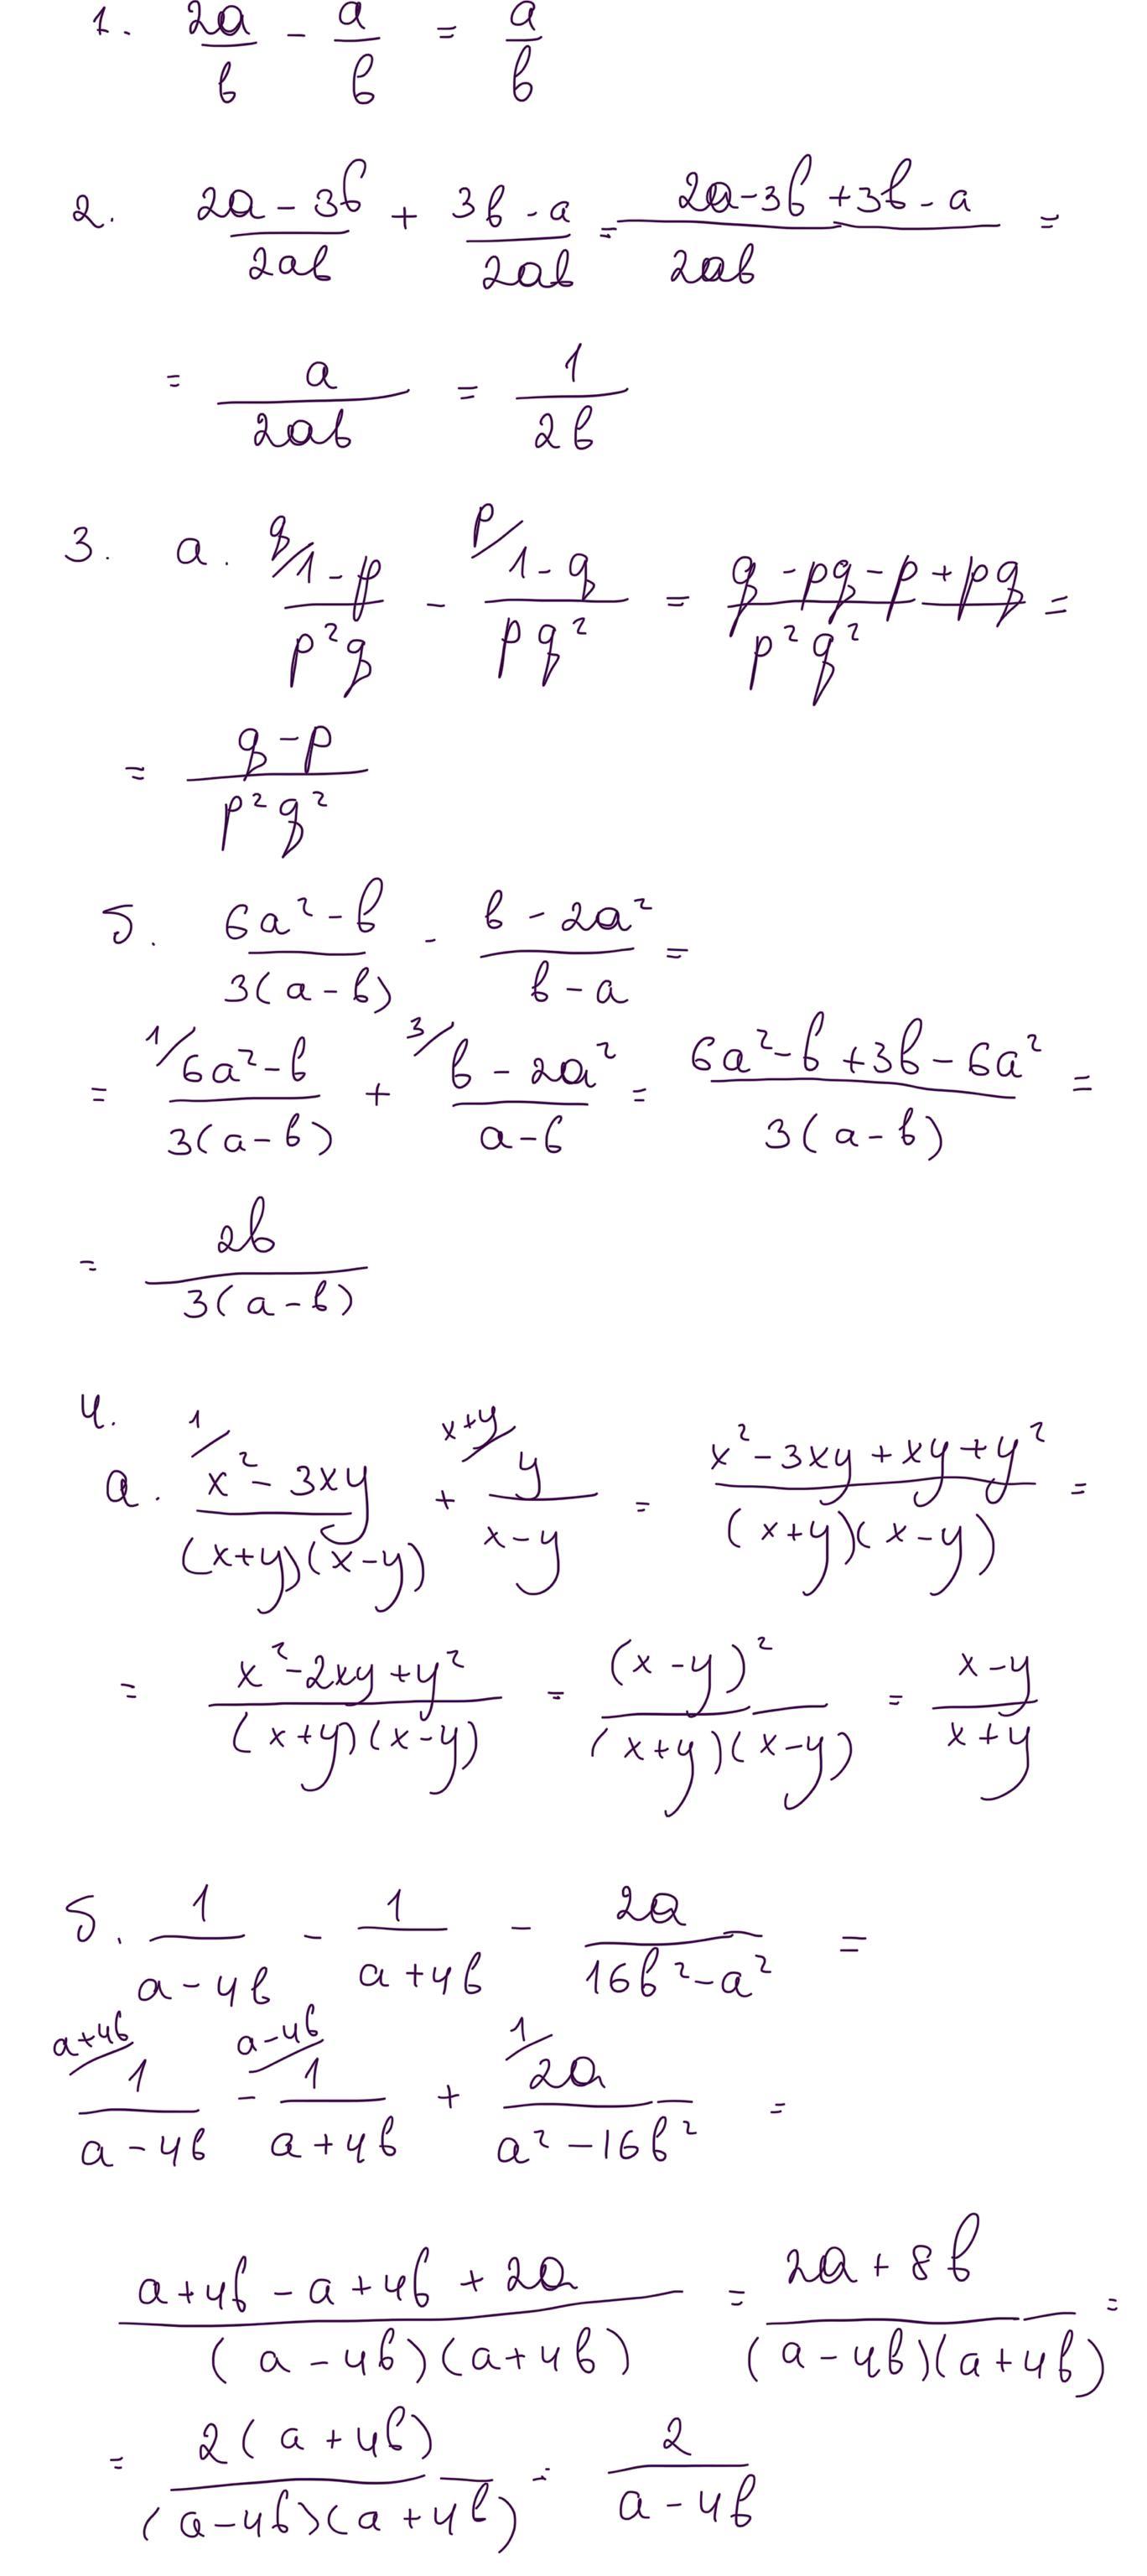 1. 2a/b - a/b = a/b
2. (2a - 3b)/(2ab) + (3b - a)/(2ab) = (2a - 3b + 3b - a)/(2ab) =
= a/(2ab) = 1/(2b)
3. а. q/ (1 - p)/(p²q) - p/ (1 - q)/(pq²) = (q - pq - p + pq)/(p²q²) =
= (q - p)/(p²q²)
б. (6a² - b)/(3(a - b)) - (b - 2a²)/(b - a) =
= 1/ (6a² - b)/(3(a - b)) + 3/ (b - 2a²)/(a - b) = (6a² - b + 3b - 6a²)/(3(a - b)) =
= 2b/(3(a - b))
4.
а. 1/ (x² - 3xy)/((x+y)(x-y)) + x+y/ y/(x-y) = (x² - 3xy + xy + y²)/((x+y)(x-y)) =
= (x² - 2xy + y²)/((x+y)(x-y)) = (x-y)²/((x+y)(x-y)) = (x-y)/(x+y)
б. 1/(a - 4b) - 1/(a + 4b) - 2a/(16b² - a²) =
a+4b/ 1/(a - 4b) - a-4b/ 1/(a + 4b) + 1/ 2a/(a² - 16b²) =
(a + 4b - a + 4b + 2a)/((a - 4b)(a + 4b)) = (2a + 8b)/((a - 4b)(a + 4b)) =
= 2(a + 4b)/((a - 4b)(a + 4b)) = 2/(a - 4b)